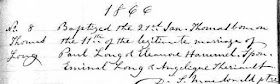 1866
No. 8 Baptized the 21st Jan. Thomas born on
Thomas the 11th of the legitimate marriage of
Long Paul Long & Eleanore Hammel. Spon.
Eminal Long & Angelique Theriault
D. F. Macdonald